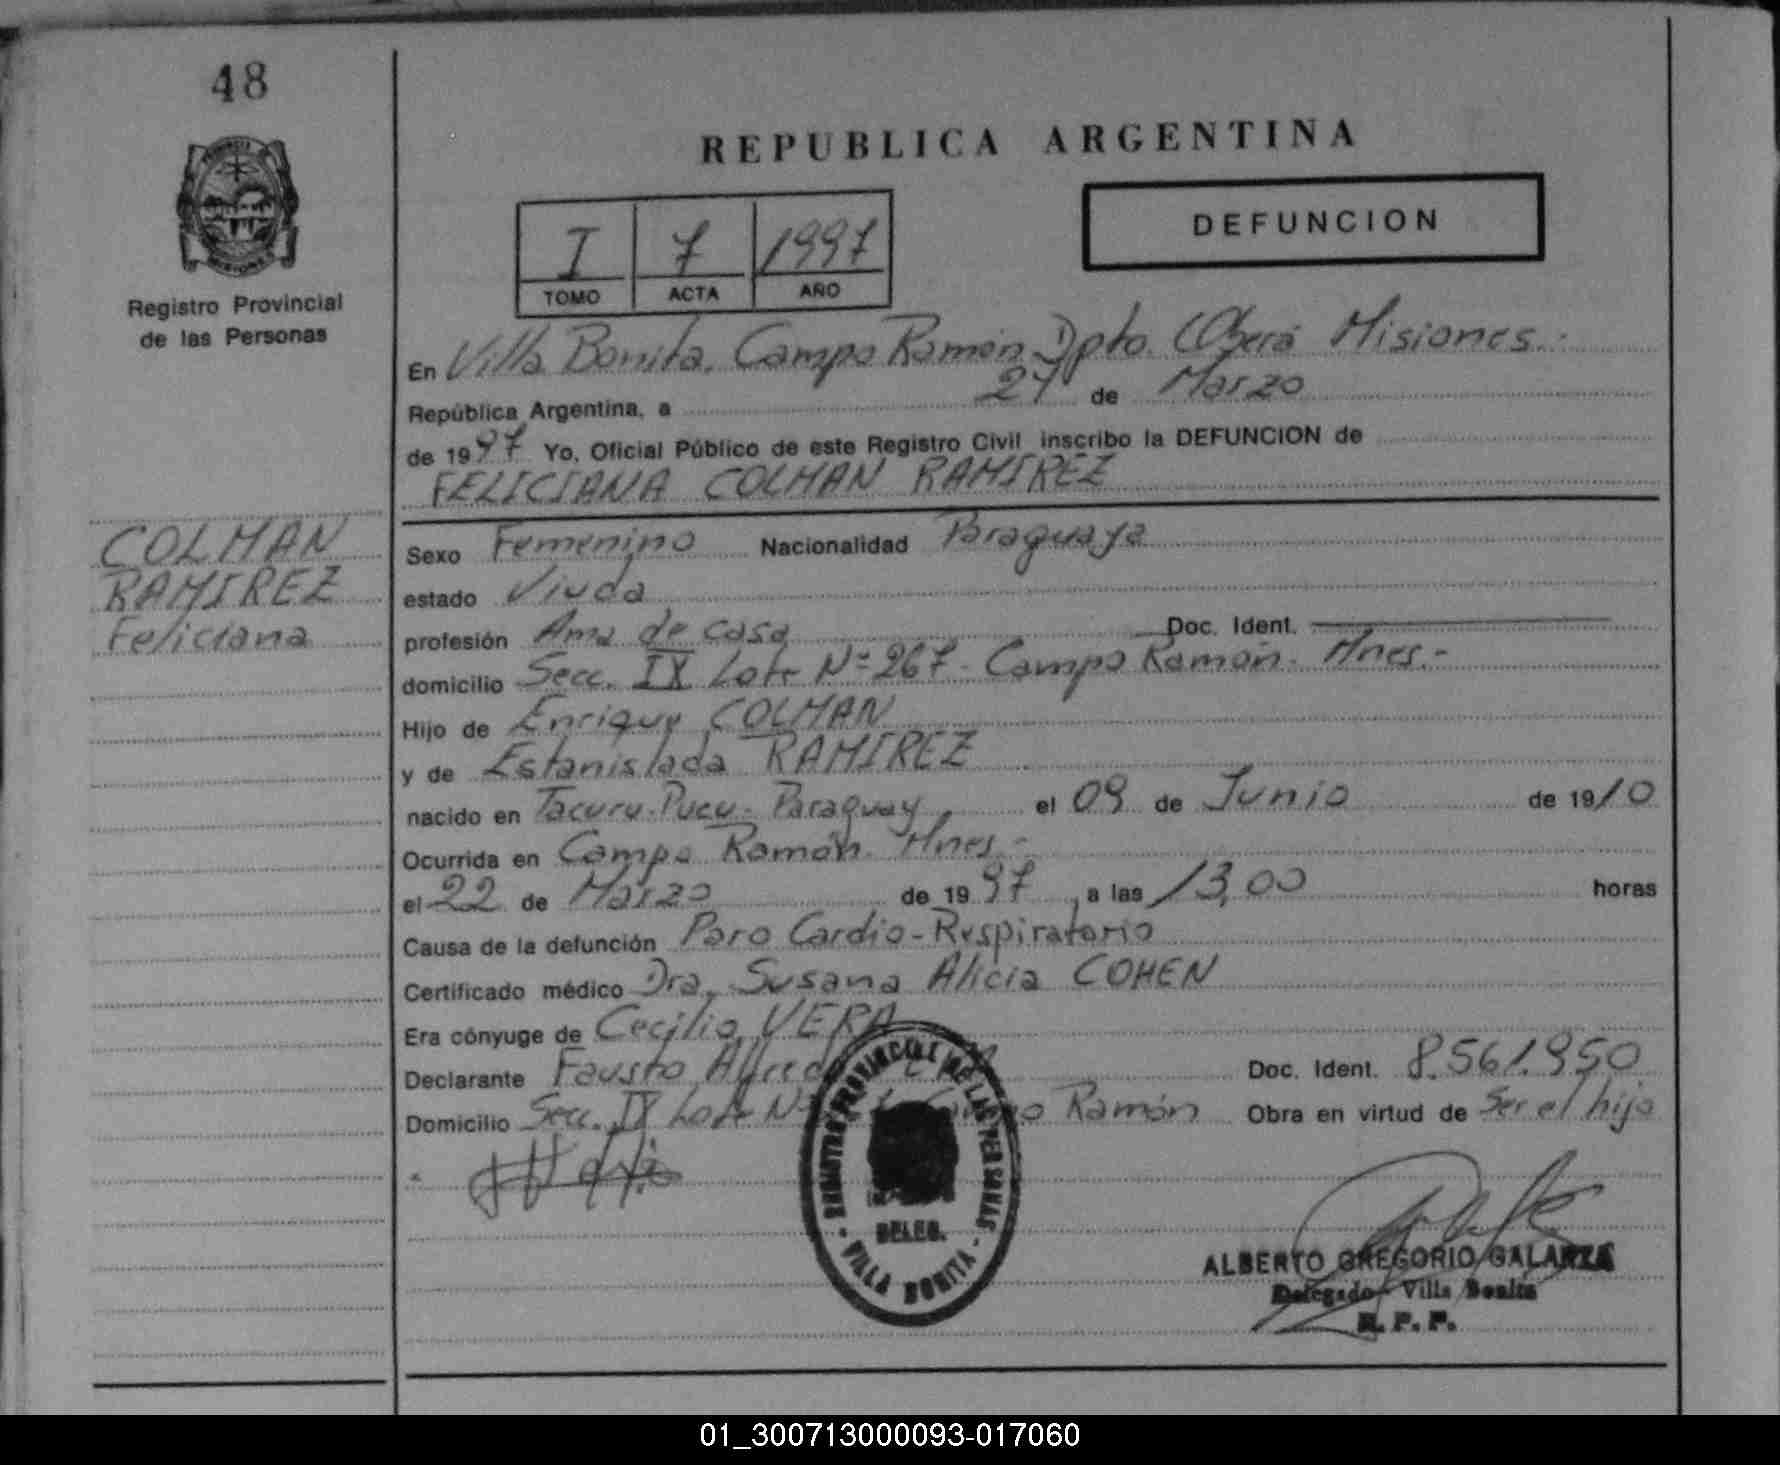 48
PROVINCIA
MISIONES
Registro Provincial
de las Personas
COLMAN
RAMIREZ
Feliciana
REPUBLICA ARGENTINA
I 7 1997
TOMO ACTA AÑO
DEFUNCION
En Villa Bonita. Campo Ramón Dpto. Oberá Misiones.-
República Argentina, a 27 de Marzo
de 1997 Yo, Oficial Público de este Registro Civil inscribo la DEFUNCION de
FELICIANA COLMAN RAMIREZ
Sexo Femenino Nacionalidad Paraguaya
estado Viuda
profesión Ama de casa Doc. Ident.
domicilio Secc. IX Lote Nº 267- Campo Ramón- Mnes.-
Hijo de Enrique COLMAN
y de Estanislada RAMIREZ
nacido en Tacuru-Pucu- Paraguay el 09 de Junio de 1910
Ocurrida en Campo Ramón- Mnes-
el 22 de Marzo de 1997, a las 13,00 horas
Causa de la defunción Paro Cardio-Respiratorio
Certificado médico Dra. Susana Alicia COHEN
Era cónyuge de Cecilio VERA
Declarante Fausto Doc. Ident. 8.561.950
Domicilio Secc. IX Lote Nº Ramón Obra en virtud de Ser el hijo
REGISTRO PROVINCIAL DE LAS PERSONAS
DELEG.
- VILLA BONITA -
ALBERTO GREGORIO GALARZA
Delegado - Villa Bonita
R. P. P.
01_300713000093-017060